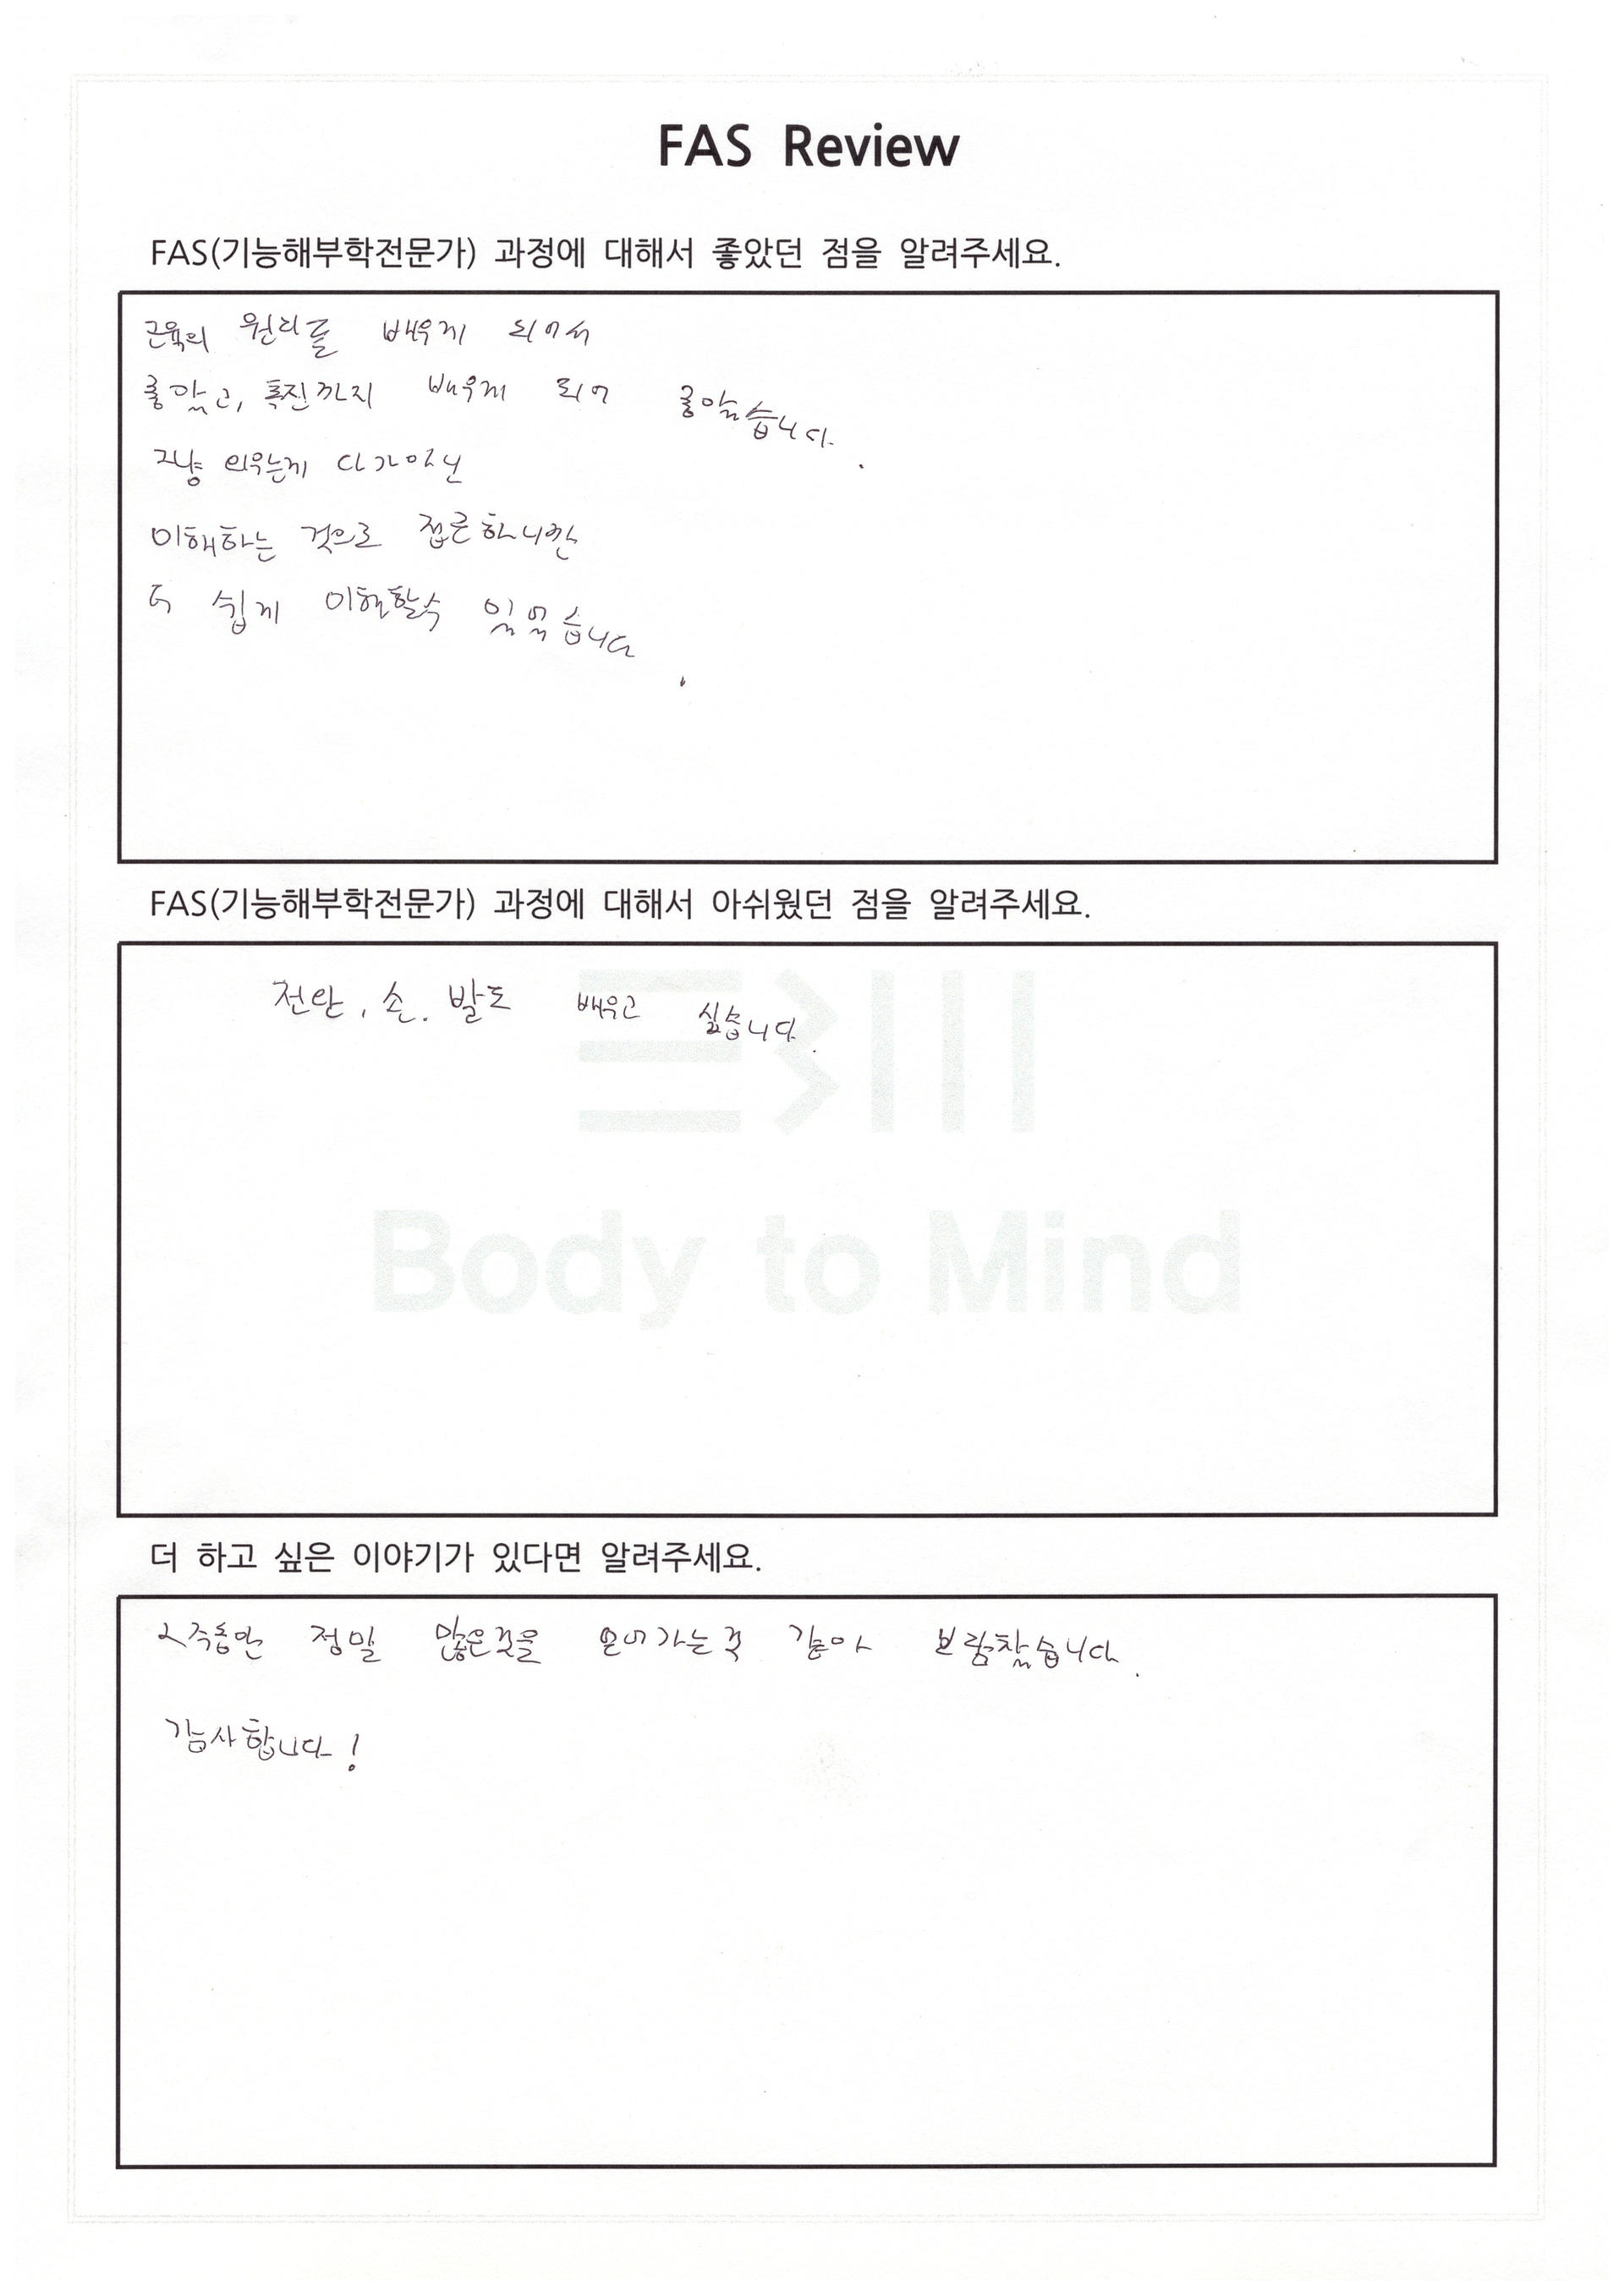 FAS Review
FAS(기능해부학전문가) 과정에 대해서 좋았던 점을 알려주세요.
근육의 원리를 배우게 되어서
좋았고, 촉진까지 배우게 되어 좋았습니다.
그냥 외우는게 다가아닌
이해하는 것으로 접근하니깐
더 쉽게 이해할수 있었습니다.
FAS(기능해부학전문가) 과정에 대해서 아쉬웠던 점을 알려주세요.
전완, 손. 발도 배우고 싶습니다.
Body to Mind
더 하고 싶은 이야기가 있다면 알려주세요.
2주동안 정말 많은것을 얻어가는것 같아 보람찼습니다.
감사합니다!